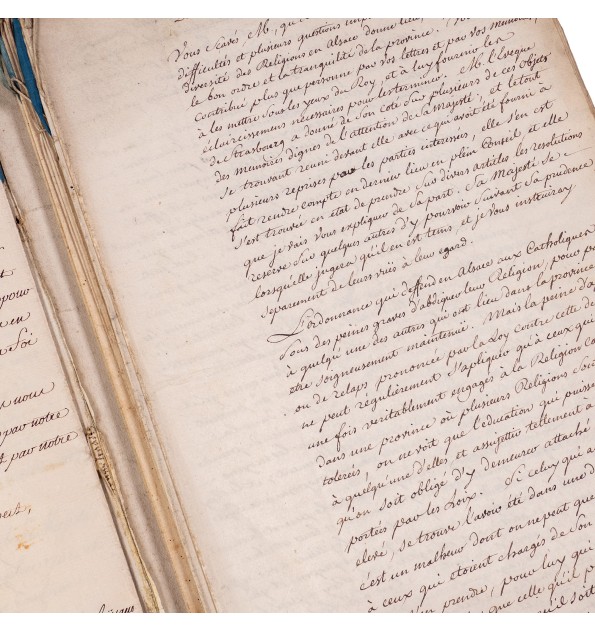 et
pour
en
Loi
nous
par notre
et par notre
Vous Scavés, M., que
difficultés et plusieurs questions
diversité des Religions en Alsace donne lieu
le bon ordre et la tranquilité de la province.
Contribué plus que personne par vos lettres et par vos memoires,
a les mettre Sous les yeux du Roy, et à luy fournir les
éclaircissemens necessaires pour les terminer. M. l'Eveque
de Strasbourg, a donné de Son coté Sur plusieurs de ces objets
des memoires dignes de l'attention de Sa Majesté; et le tout
Se trouvant reuni devant elle avec ce qui avoit été fourni à
plusieurs reprises par les parties interessées, elle S'en est
fait rendre compte en dernier lieu en plein Conseil et elle
S'est trouvée en état de prendre Sur divers articles les resolutions
que je vais Vous expliquer de Sa part. Sa Majesté Se
reserve Sur quelques autres d'y pourvoir Suivant Sa prudence
lorsqu'elle jugera qu'il en est tems, et je vous instruiray
Separement de leurs vuës à leur egard.
L'ordonnance qui deffend en Alsace aux Catholiques
Sous des peines graves d'abjurer leur Religion, pour
à quelqu'une des autres qui est lieu dans la province
etre Soigneusement maintenuë. Mais la peine
ou de relaps prononcée par la Loy contre cette
ne peut regulierement S'appliquer qu'à ceux qui
une fois veritablement engagés à la Religion
dans une province où plusieurs Religions
tolerées, on ne voit que l'éducation qui puisse
à quelqu'une d'elles et assujettir tellement à
qu'on Soit obligé d'y demeurer attaché
portées par les Loix. Si celuy qui a
elevé, se trouve l'avoir été dans une
c'est un malheur dont on ne peut que
à ceux qui etoient chargés de Son
prendre, pour luy qui
que celle qu'il
qu'il soit